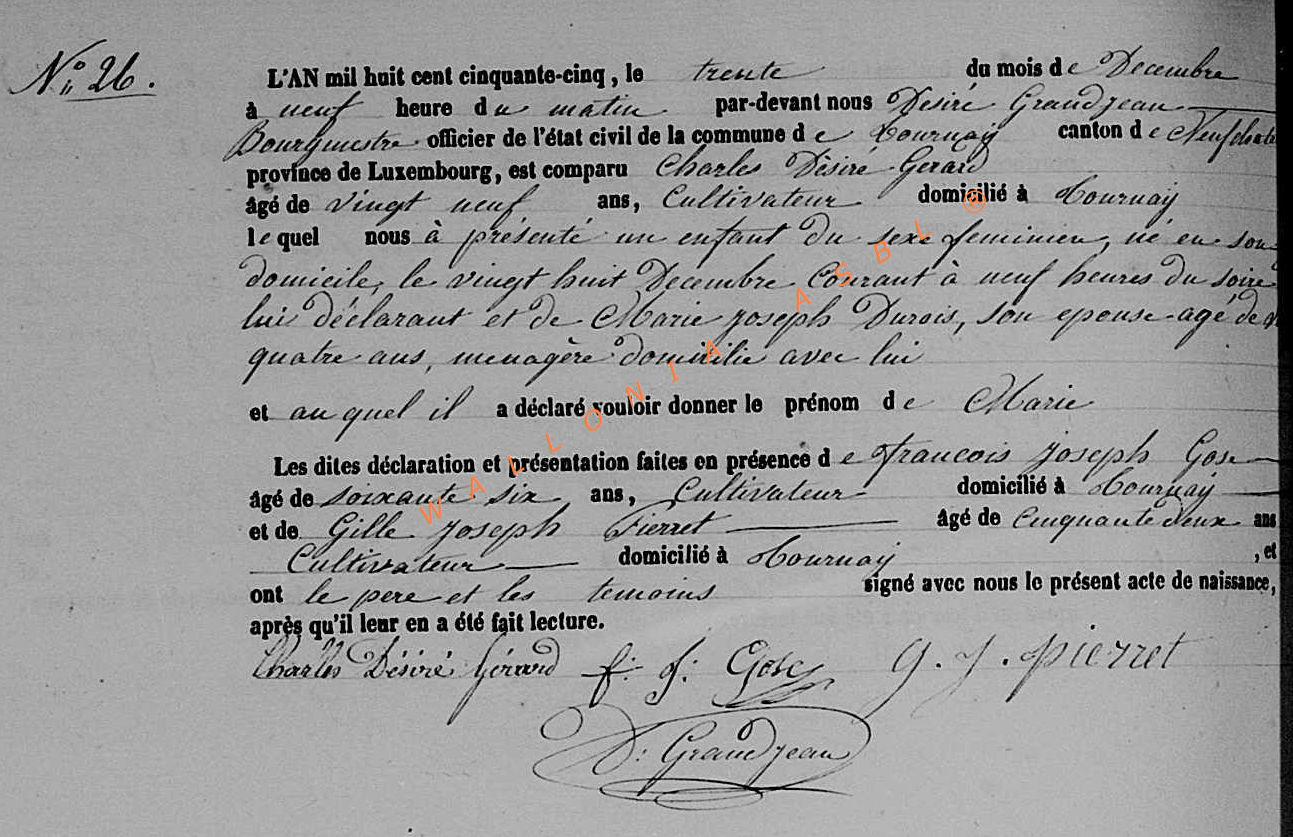 N° 26.
L'AN mil huit cent cinquante-cinq, le trente du mois de Decembre
à neuf heure du matin par-devant nous Désiré Grandjean
Bourgmestre officier de l'état civil de la commune de Tournay canton de Neufchate
province de Luxembourg, est comparu Charles Désiré Gerard
âgé de vingt neuf ans, Cultivateur domicilié à Tournay
lequel nous à présenté un enfant du sexe feminien, né en son
domicile, le vingt huit Decembre Courant à neuf heures du soire
lui déclarant et de Marie Joseph Durois, son epouse agé de
quatre ans, menagère domicilie avec lui
et au quel il a déclaré vouloir donner le prénom de Marie
Les dites déclaration et présentation faites en présence de francois Joseph Gose
âgé de soixante six ans, Cultivateur domicilié à Tournay
et de Gille Joseph Pierret âgé de Cinquante deux ans
Cultivateur domicilié à Tournay, et
ont le pere et les temoins signé avec nous le présent acte de naissance,
après qu'il leur en a été fait lecture.
Charles Désiré Gérard f. J. Gose G. J. Pierret
D. Grandjean
WALLONIA ASBL ®